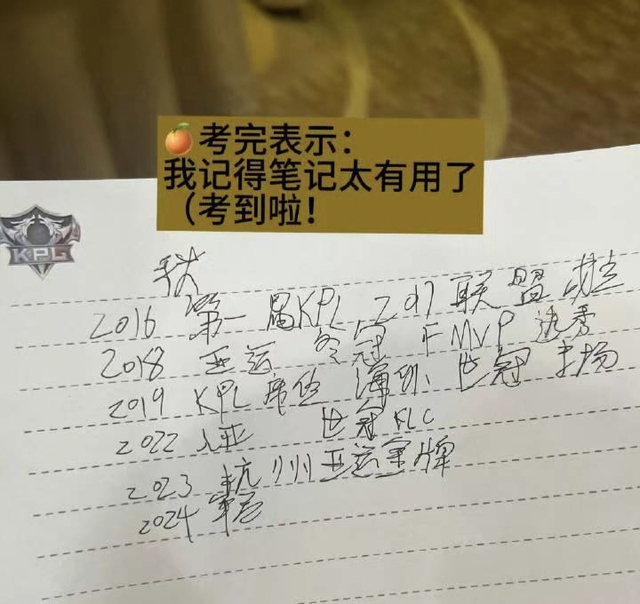 🍊考完表示：
我记得笔记太有用了
（考到啦！
KPL
2016 第一届KPL 2017 联盟成立
2018 亚运 冬冠 FMVP 选秀
2019 KPL席位 海外 世冠 主场
2022 入亚 世冠 KLC
2023 杭州亚运金牌
2024 年总